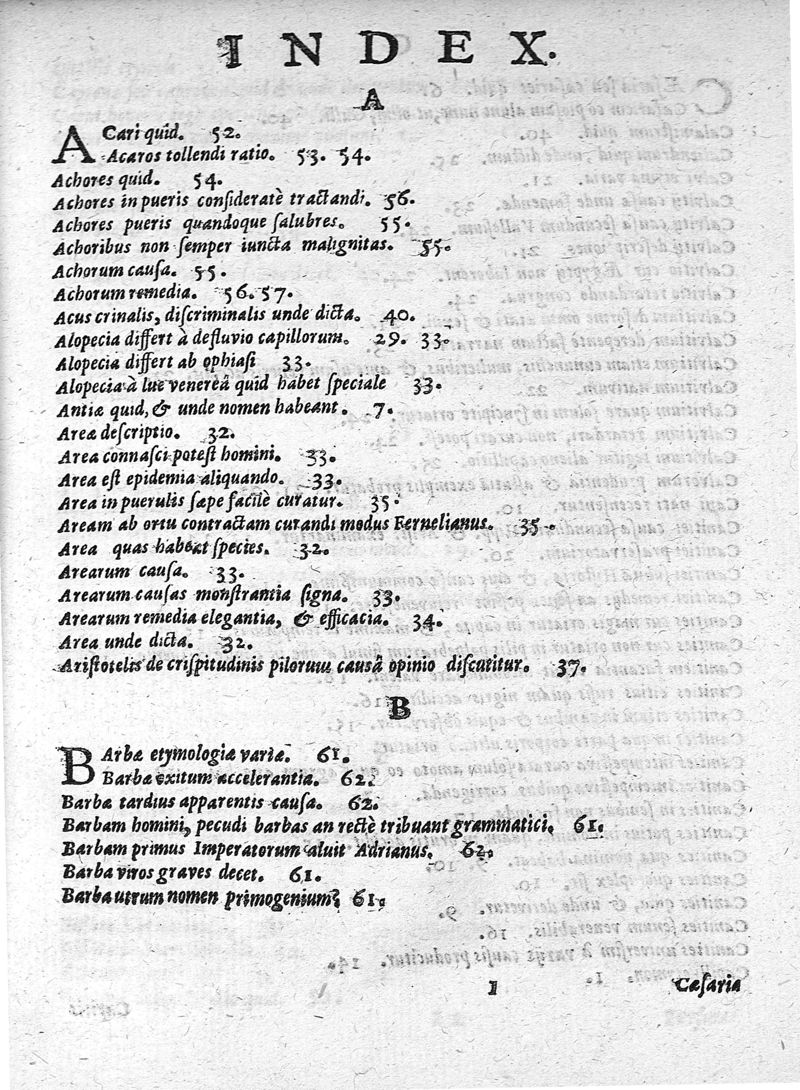 INDEX.
A
ACari quid. 52.
Acaros tollendi ratio. 53. 54.
Achores quid. 54.
Achores in pueris consideratè tractandi. 56.
Achores pueris quandoque salubres. 55.
Achoribus non semper iuncta malignitas. 55.
Achorum causa. 55.
Achorum remedia. 56. 57.
Acus crinalis, discriminalis unde dicta. 40.
Alopecia differt à defluvio capillorum. 29. 33.
Alopecia differt ab ophiasi 33.
Alopecia à lue venereâ quid habet speciale 33.
Antiæ quid, & unde nomen habeant. 7.
Areæ descriptio. 32.
Area connasci potest homini. 33.
Area est epidemia aliquando. 33.
Area in puerulis sæpe facilè curatur. 35.
Aream ab ortu contractam curandi modus Fernelianus. 35.
Area quas habeat species. 32.
Arearum causa. 33.
Arearum causas monstrantia signa. 33.
Arearum remedia elegantia, & efficacia. 34.
Area unde dicta. 32.
Aristotelis de crispitudinis pilorum causâ opinio discutitur. 37.
B
BArbæ etymologiæ variæ. 61.
Barbæ exitum accelerantia. 62.
Barbæ tardius apparentis causa. 62.
Barbam homini, pecudi barbas an rectè tribuant grammatici. 61.
Barbam primus Imperatorum aluit Adrianus. 62.
Barba viros graves decet. 61.
Barba utrum nomen primogenium? 61.
I Cæsaria